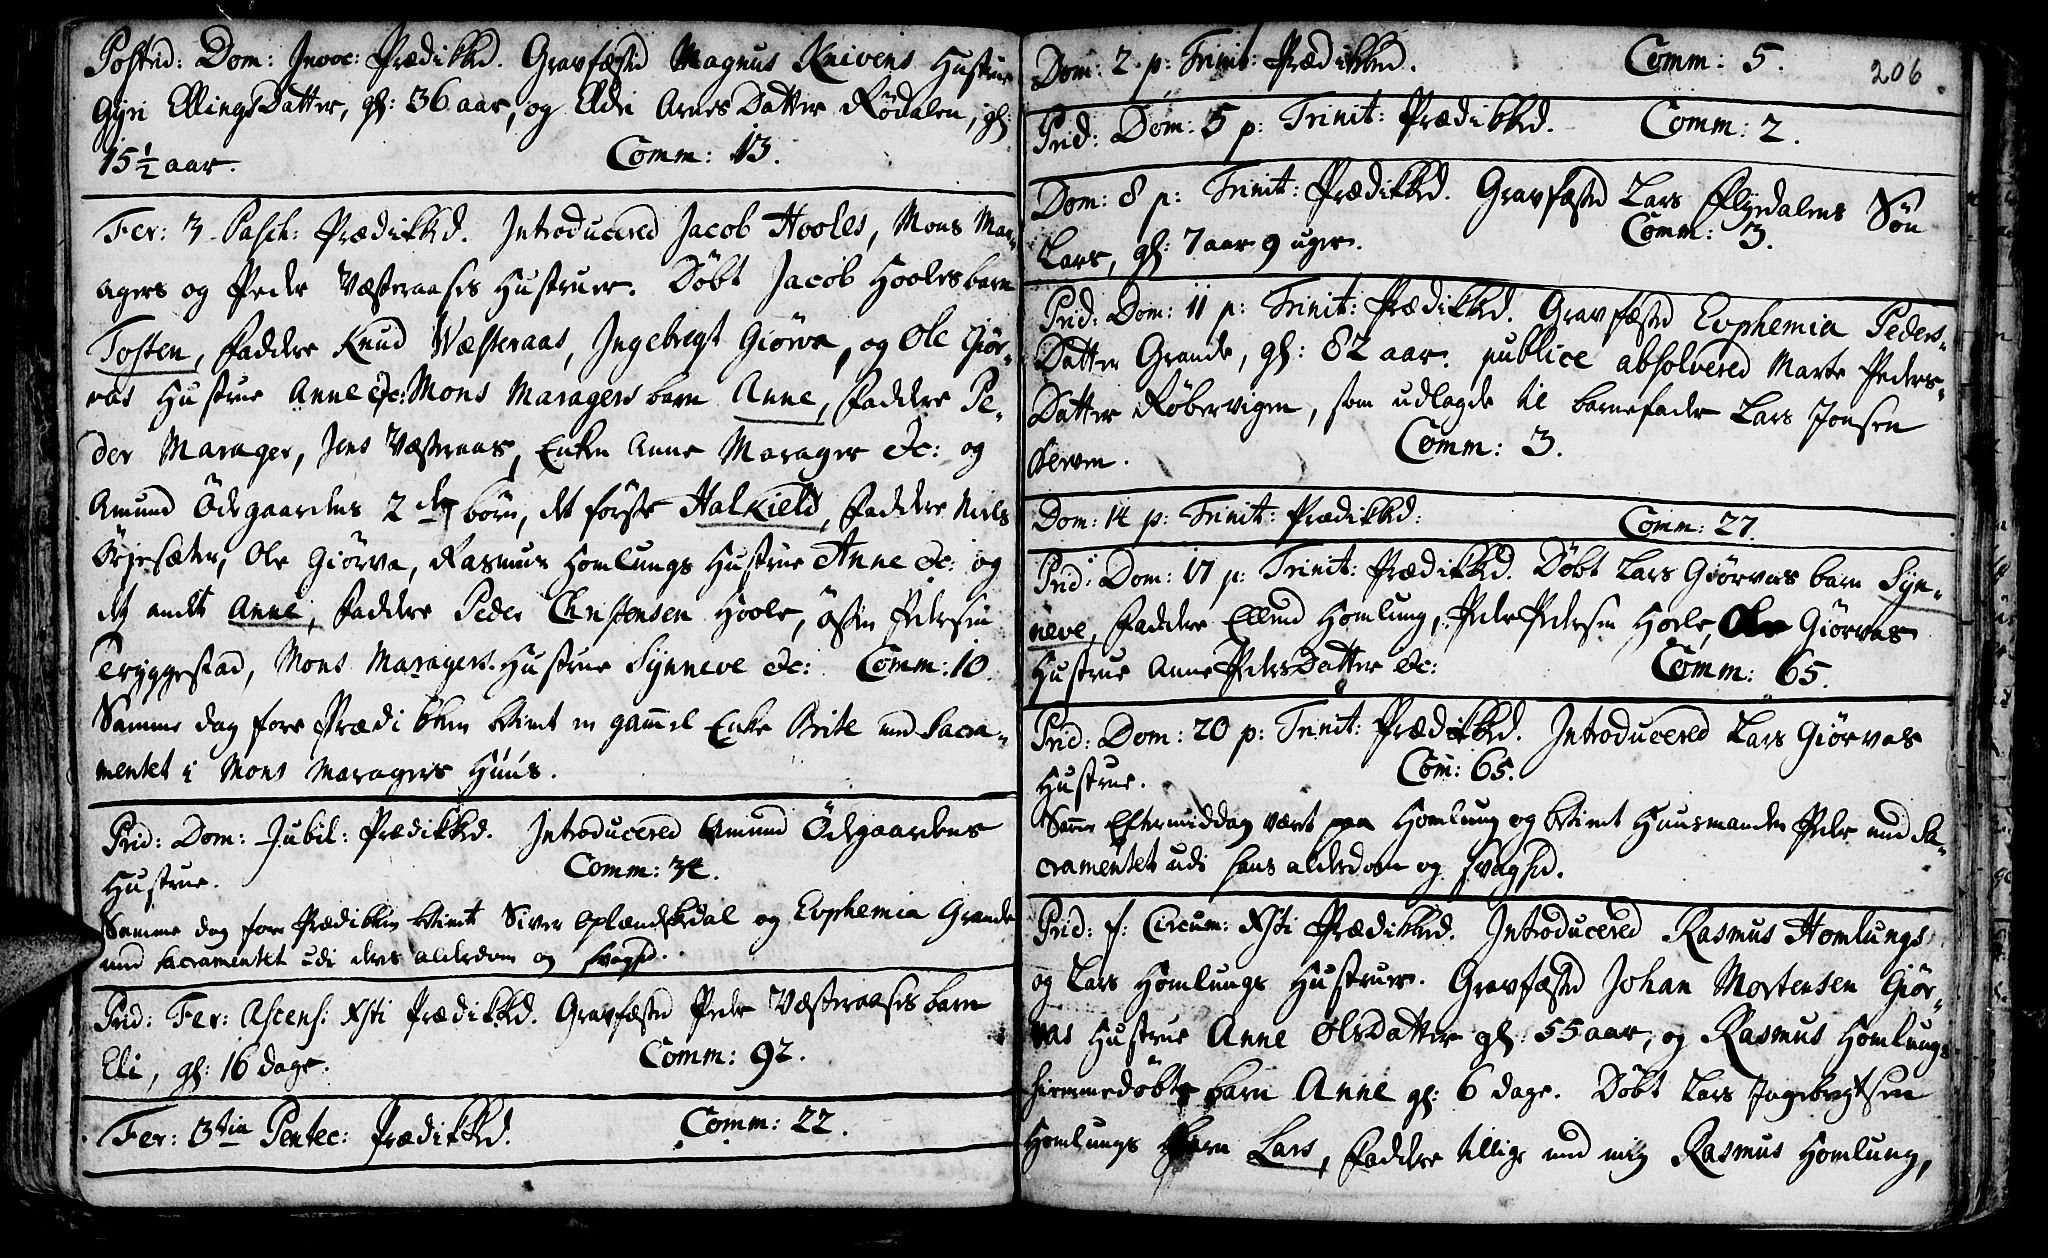 Postrid: Dom: Invoc: Prædikked. Gravfæsted Magnus Knivens Hustrue
Gyri EllingsDatter, gl: 36 aar, og Eldri ArnesDatter Rödalen, gl:
15½ aar. Comm: 13.
Fer: 3 Pasch: Prædikked. Introducered Jacob Hooles, Mons Mar-
agers og Peder Væsteraases Hustruer. Döbt Jacob Hooles barn
Tosten, Faddere Knud Væsteraas, Ingebregt Giörva, og Ole Giör-
vas Hustrue Anne &c: Mons Maragers barn Anne, Faddere Pe-
der Marager, Jens Væsteraas, Enken Anne Marager &c: og
Amund Ödegaardens 2de börn, det förste Halkield, Faddere Niels
Örjesæter, Ole Giörva, Rasmus Homlungs Hustrue Anne &c: og
det andet Anne, Faddere Peder Christensen Hoole, östen Pedersen
Tryggestad, Mons Maragers Hustrue Synneve &c: Comm: 10.
Samme dag före Prædikken betient en gammel Enke Brite med Sacra-
mentet i Mons Maragers Huus.
Prid: Dom: Jubil: Prædikked. Introducered Amund Ödegaardens
Hustrue. Comm: 34.
Samme dag för Prædikken betient Siver Oplændskdal og Euphemia Grande
med Sacramentet udi deres alderdom og svaghed.
Prid: Fer: Ascens: Xsti Prædikked. Gravfæsted Peder Væsteraases barn
Eli, gl: 16 dage. Comm: 92.
Fer: 3tia Pentec: Prædikked. Comm: 22.
206
Dom: 2 p: Trinit: Prædikked. Comm: 5.
Prid: Dom: 5 p: Trinit: Prædikked. Comm: 2.
Dom: 8 p: Trinit: Prædikked. Gravfæsted Lars Flydalens Sön
Lars, gl: 7 aar 9 uger. Comm: 3.
Prid: Dom: 11 p: Trinit: Prædikked. Gravfæsted Euphemia Peders-
Datter Grande, gl: 82 aar. publice absolvered Marte Peders-
Datter Röbervigen, som udlagde til barnefader Lars Jonsen
Comm: 3.
Dom: 14 p: Trinit: Prædikked. Comm: 27.
Prid: Dom: 17 p: Trinit: Prædikked. Döbt Lars Giörvas barn Syn-
neve, Faddere Ellend Homlung, Peder Pedersen Hoole, Ole Giörvas
Hustrue Anne PedersDatter &c: Comm: 65.
Prid: Dom: 20 p: Trinit: Prædikked. Introducered Lars Giörvas
Hustrue. Com: 65.
Samme Eftermiddag været paa Homlung og betient Huusmanden Peder med Sa-
cramentet udi hans alderdom og svaghed.
Prid: f: Circum: Xsti Prædikked. Introducered Rasmus Homlungs
og Lars Homlungs Hustruer. Gravfæsted Johan Mortensen Giör-
vas Hustrue Anne OlsDatter gl: 55 aar, og Rasmus Homlungs
hiemmedöbte barn Anne gl: 6 dage. Döbt Lars Ingebregtsen
Homlungs barn Lars, Faddere tillige med mig Rasmus Homlung,